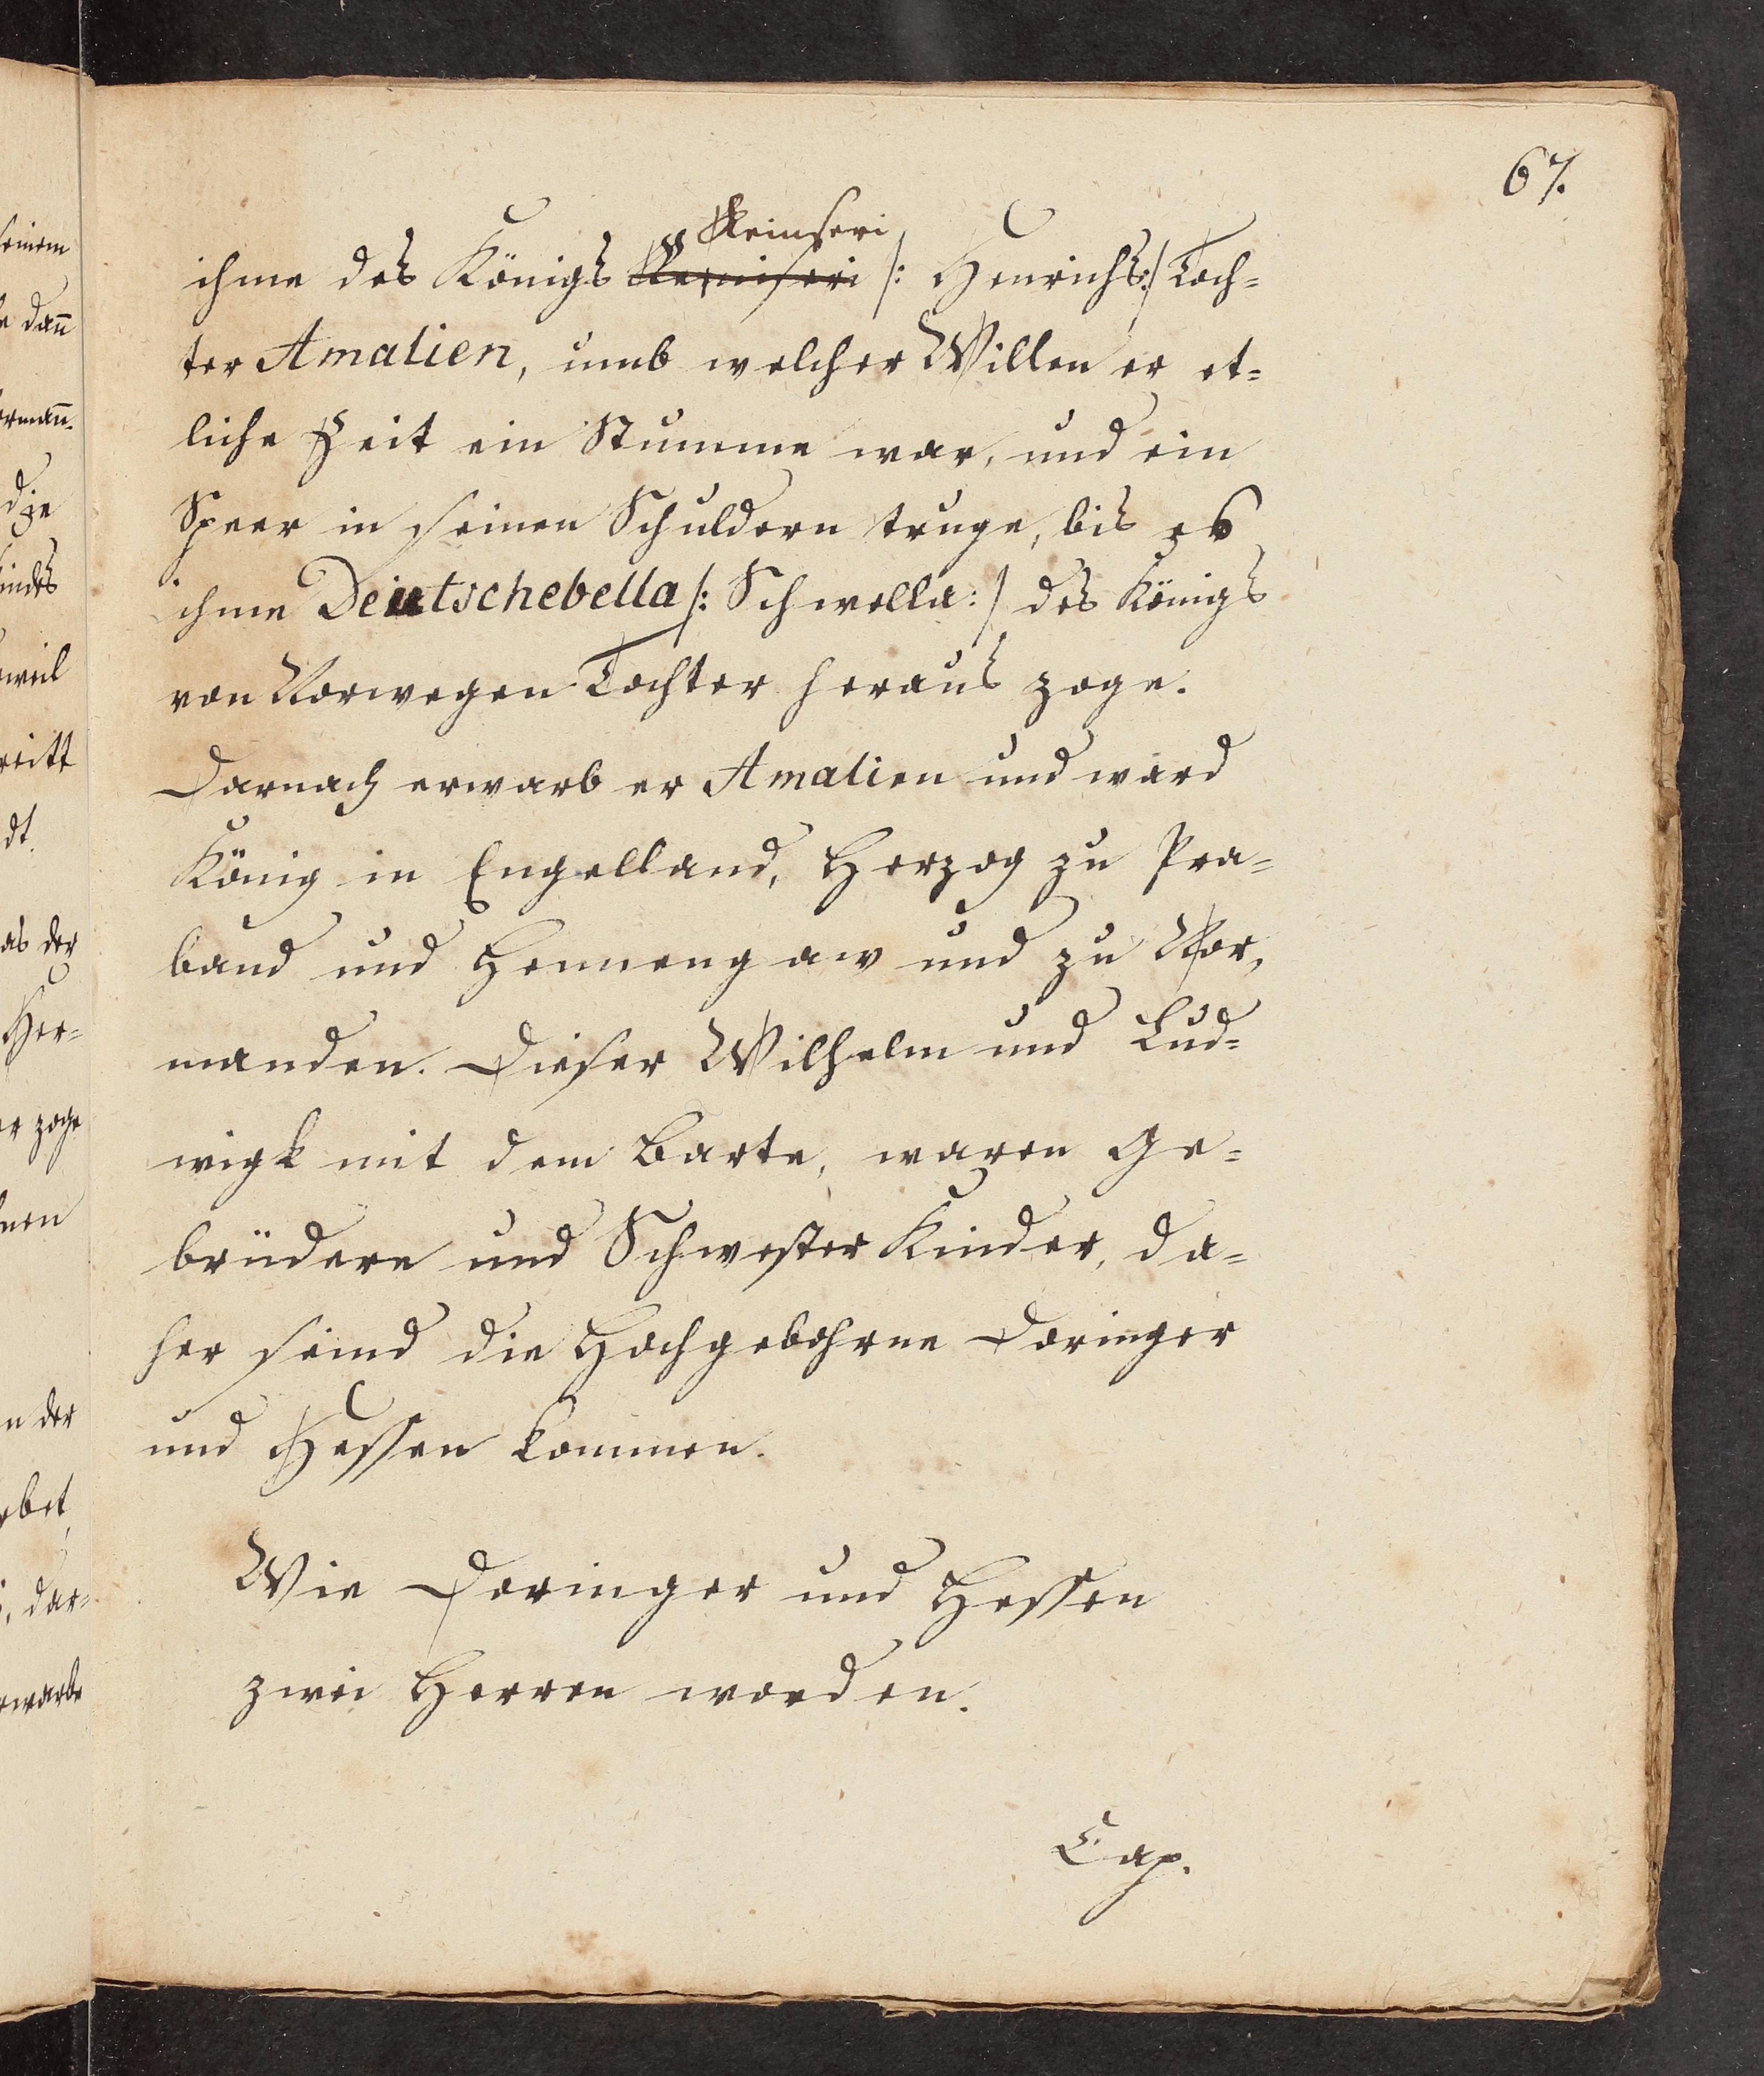 67.
Reinseri
ihme des Königs /: Henrichs :/ Toch=
ter Amalien, umb welcher Willen er et=
liche Zeit ein Stumme war, und ein
Speer in seinen Schuldern truge, bis es
ihme Deutschebella /: Schwella :/ des Königs
von Norwegen Tochter heraus zoge.
Darnach erwarb er Amalien und ward
König in Engelland, Herzog zu Pra=
band und Hennengaw und zu Nor,
manden. Dieser Wilhelm und Lud=
wigk mit dem Barte, waren Ge=
brüdere und Schwester Kinder, da=
her seind die Hochgebohrne Doringer
und Hessen kommen.
Wie Doringer und Hessen
zwei Herren worden.
Cap.
seinem
dañ
ermañ.
weil
reitt
dt.
as der
Her=
er zoge
n der
dar=